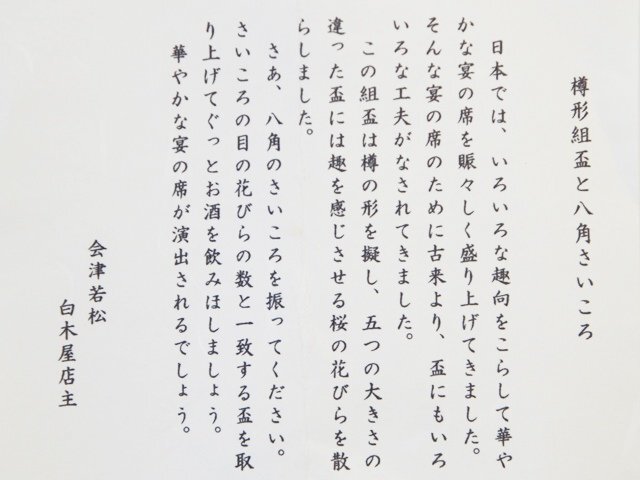 樽形組盃と八角さいころ
日本では、いろいろな趣向をこらして華や
かな宴の席を賑々しく盛り上げてきました。
そんな宴の席のために古来より、盃にもいろ
いろな工夫がなされてきました。
この組盃は樽の形を擬し、五つの大きさの
違った盃には趣を感じさせる桜の花びらを散
らしました。
さあ、八角のさいころを振ってください。
さいころの目の花びらの数と一致する盃を取
り上げてぐっとお酒を飲みほしましょう。
華やかな宴の席が演出されるでしょう。
会津若松
白木屋店主